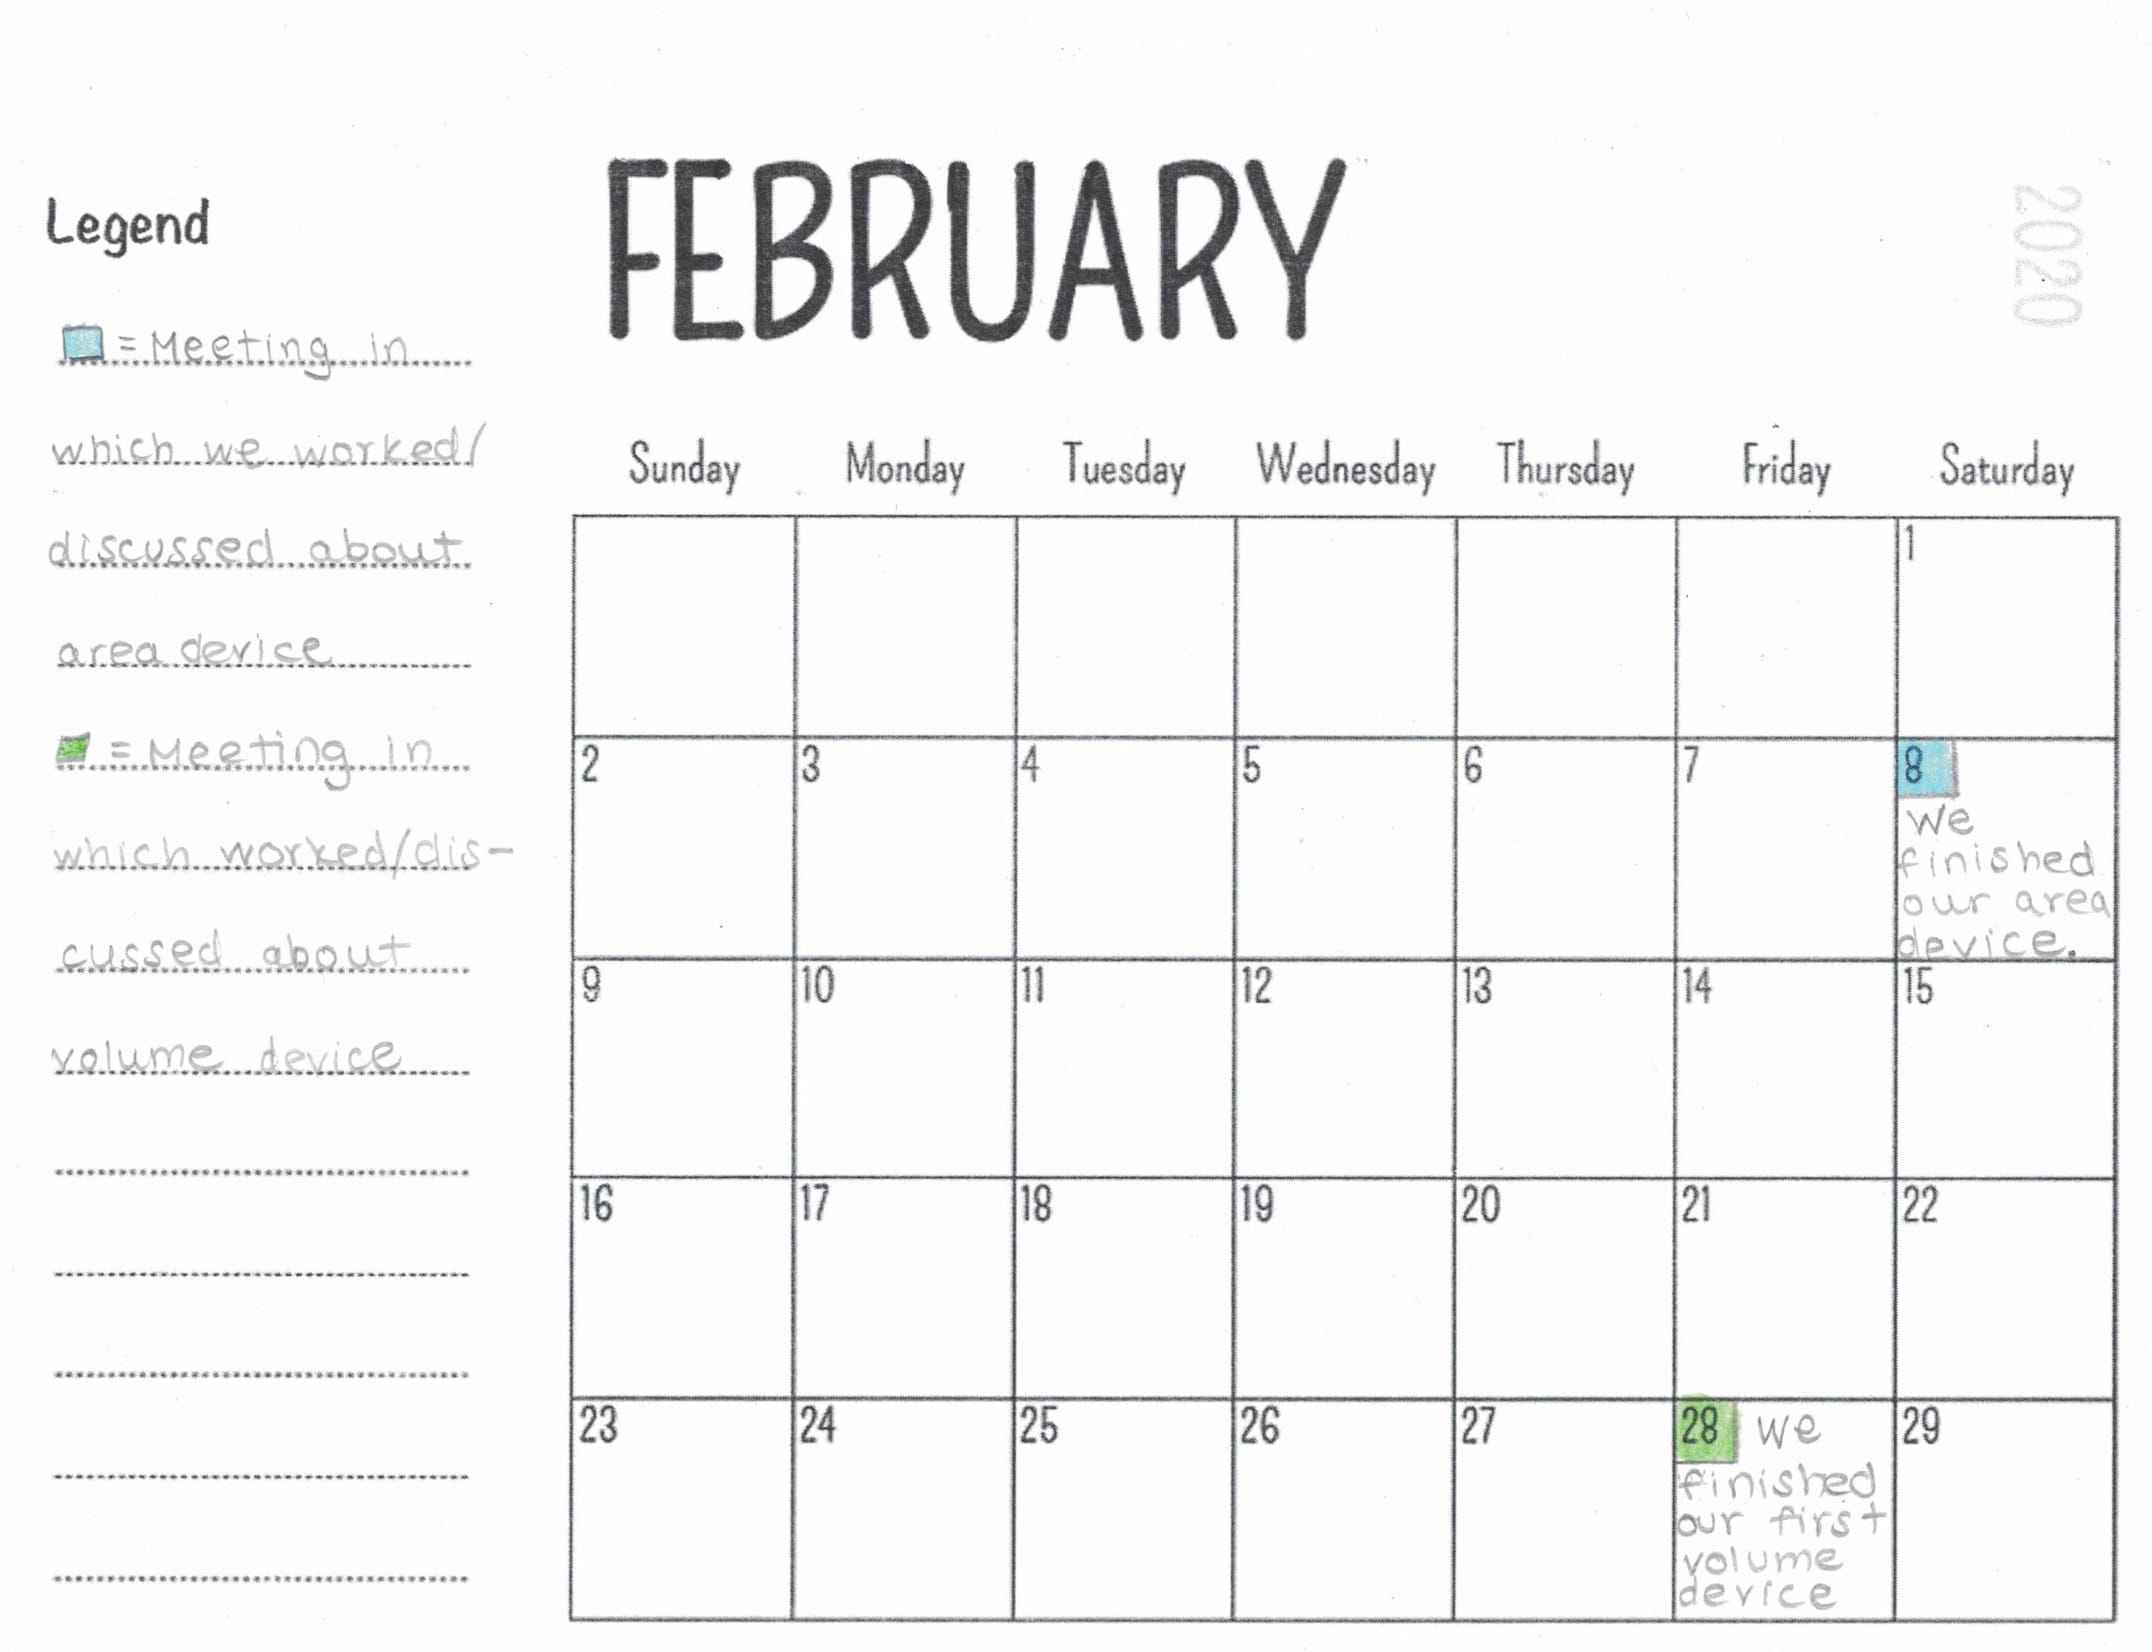 FEBRUARY
2020
Legend
= Meeting in
which we worked/
discussed about
area device
= Meeting in
which worked/dis-
cussed about
volume device
Sunday Monday Tuesday Wednesday Thursday Friday Saturday
1
2 3 4 5 6 7 8
We
finished
our area
device.
9 10 11 12 13 14 15
16 17 18 19 20 21 22
23 24 25 26 27 28 We 29
finished
our first
volume
device